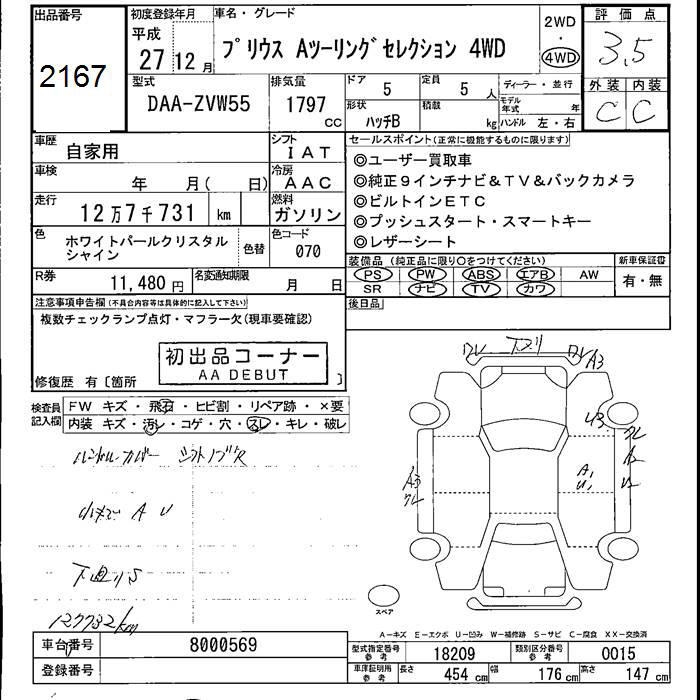 出品番号
2167
初度登録年月
平成
27 12 月
車名・グレード
プリウス Aツーリングセレクション 4WD
2WD
・
4WD
評価点
3.5
外装 内装
C C
型式
DAA-ZVW55
排気量
1797
CC
ドア
5
定員
5 人
形状
ハッチB
積載
kg
ディーラー・並行
モデル年式
年
ハンドル 左・右
車歴
自家用
シフト
IAT
車検
年 月( 日)
冷房
AAC
走行
12万7千731 km
燃料
ガソリン
色
ホワイトパールクリスタル
シャイン
色替
色コード
070
R券
11,480 円
名変通知期限
月 日
セールスポイント(正常に機能するものに限ります)
◎ユーザー買取車
◎純正9インチナビ&TV&バックカメラ
◎ビルトインETC
◎プッシュスタート・スマートキー
◎レザーシート
装備品 (純正品に限り○をつけてください)
PS PW ABS エアB AW
SR ナビ TV カワ
新車保証書
有・無
後日品
注意事項申告欄(不具合内容等は具体的に記入して下さい)
複数チェックランプ点灯・マフラー欠(現車要確認)
初出品コーナー
AA DEBUT
修復歴 有〔箇所 〕
検査員
記入欄
FW キズ・飛石・ヒビ割・リペア跡・×要
内装 キズ・汚レ・コゲ・穴・スレ・キレ・破レ
ハンドルカバー シフトノブス
小キズ A U
下廻りS
127732km
下廻り
A3
U3
A3
A1
U1
A2
U2
スペア
A-キズ E-エクボ U-凹み W-補修跡 S-サビ C-腐食 XX-交換済
車台番号
8000569
登録番号
型式指定番号
参考
18209
類別区分番号
参考
0015
車庫証明用
参考
長さ
454 cm
幅
176 cm
高さ
147 cm